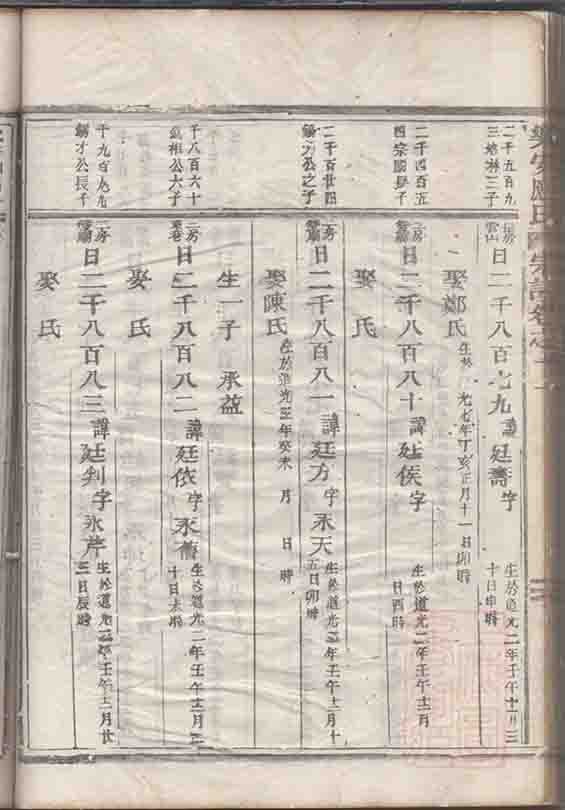 樂安處氏宗譜卷之
二千五百九
三
日二千八百七九 諱廷壽字
生於道光二年壬午十一月三
十日申時
娶鄭氏
生於 光七年丁亥正月十一日卯時
二千四百五
四宗國長子
二房
日二千八百八十 諱廷侯字
生於道光二年壬午十二月
日酉時
娶 氏
二千百廿四
公之子
二房
日二千八百八一 諱廷方字永天
生於道光二年壬午十二月十
五日卯時
娶陳氏
生於道光三年癸未 月 日 時
生一子 承益
千八百六十
公六子
二房
日二千八百八二 諱廷依字永舊
生於道光二年壬午十二月
十日未時
娶 氏
千九百九九
錫才公長子
二房
日二千八百八三 諱廷判字永芹
生於道光二年壬午十二月廿
三日辰時
娶 氏